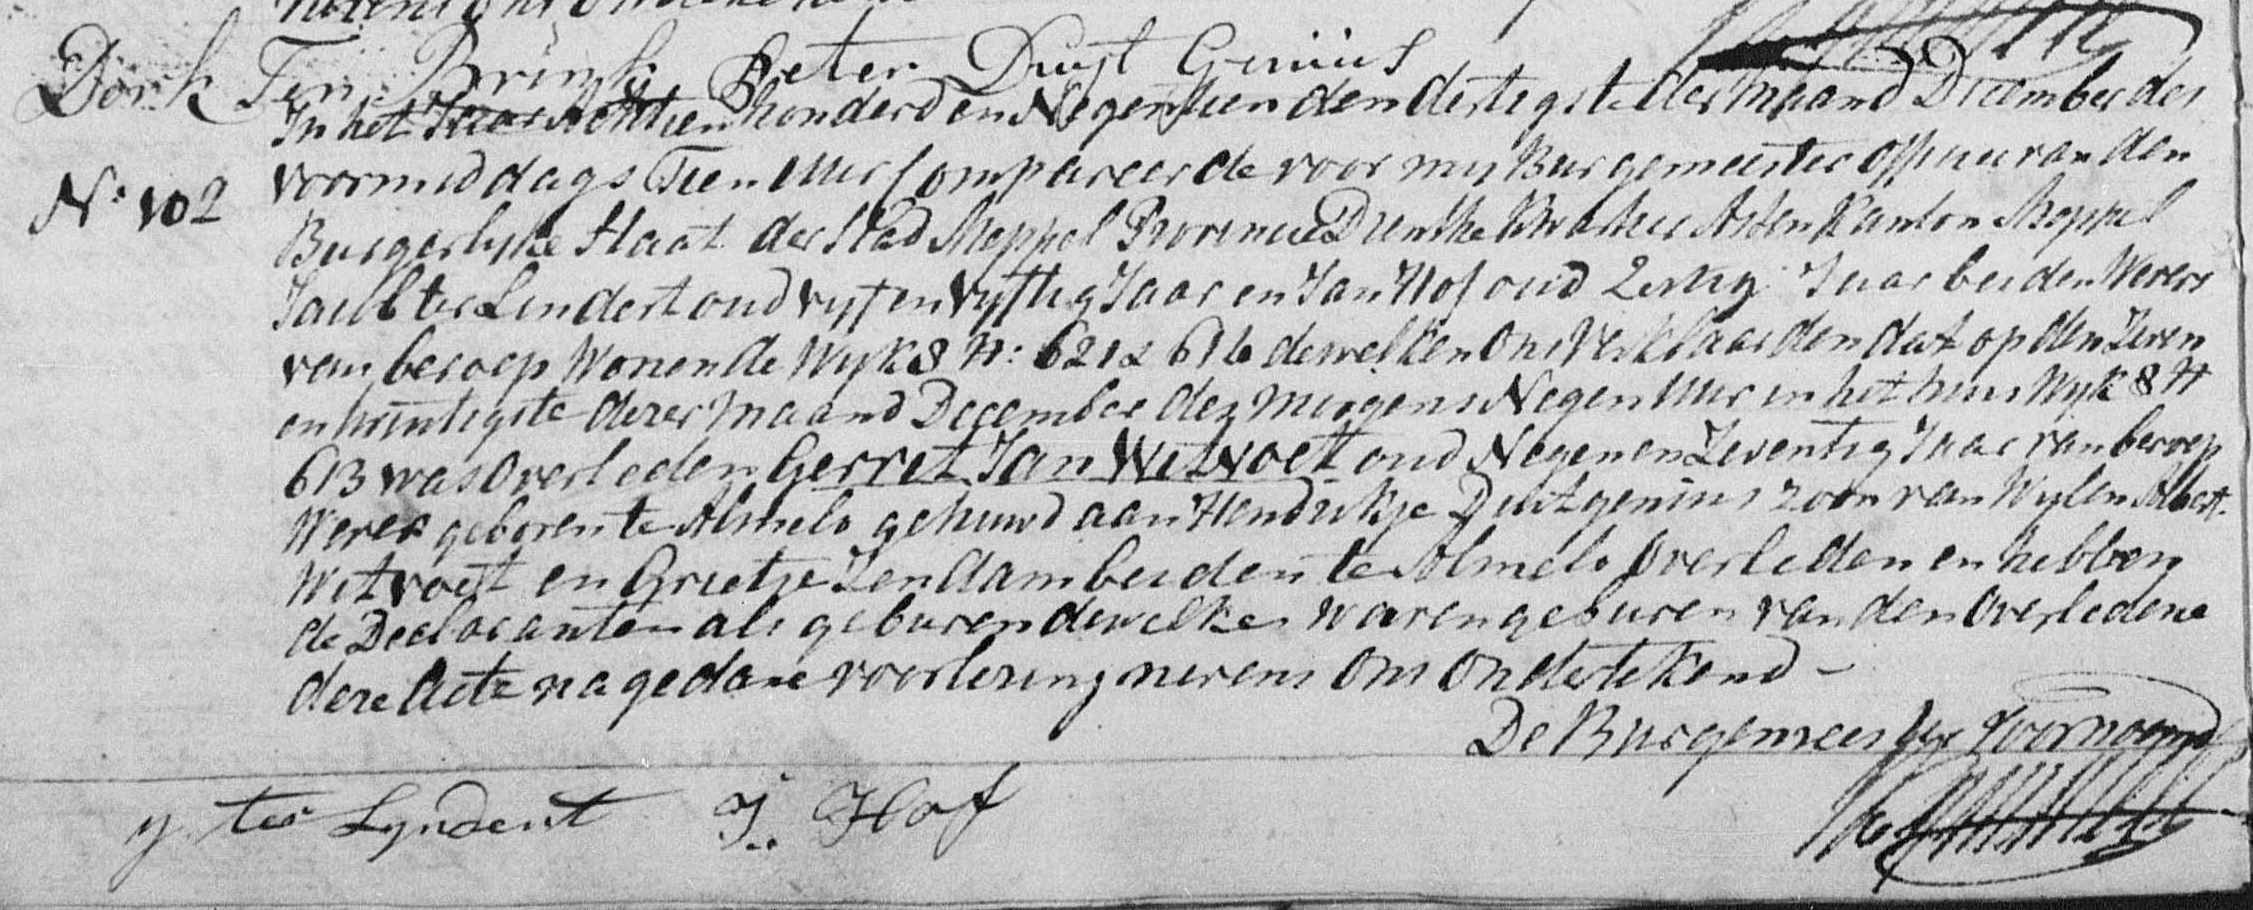 Dork Ten Brink Peter Duyt Geniús
In het Jaar Achttien honderd en Negentien den dertigste der Maand December des
No 102
voormiddags Tien uur Compareerde voor my Burgemeester Offisier van den
Burgerlyke Staat der Stad Meppel Provincie Drenthe Kwartier Assen Kanton Meppel
Jacob ter Lindert oud vyf en vyftig Jaar en Jan Hof oud Zestig Jaar beiden Wevers
van beroep Wonende Wyk 8 N: 621 & 616 dewelken Ons Verklaarden dat op den Zeven
en twintigste dezer Maand December des Morgens Negen uur in het huis Wyk 8 N
613 was Overleden Gerret Jan Witvoet oud Negen en Zeventig Jaar van beroep
Wever geboren te Almelo gehuwd aan Hendrikje Duitgenius zoon van Wylen Albert
Witvoet en Grietje Zendam beiden te Almelo Overleden en hebben
de Declaranten als geburen dewelke waren geburen van den Overledene
deze Acte na gedane voorlezing nevens Ons Ondertekend –
De Burgemeester Voornoemd
y ter Lyndert J. Hof